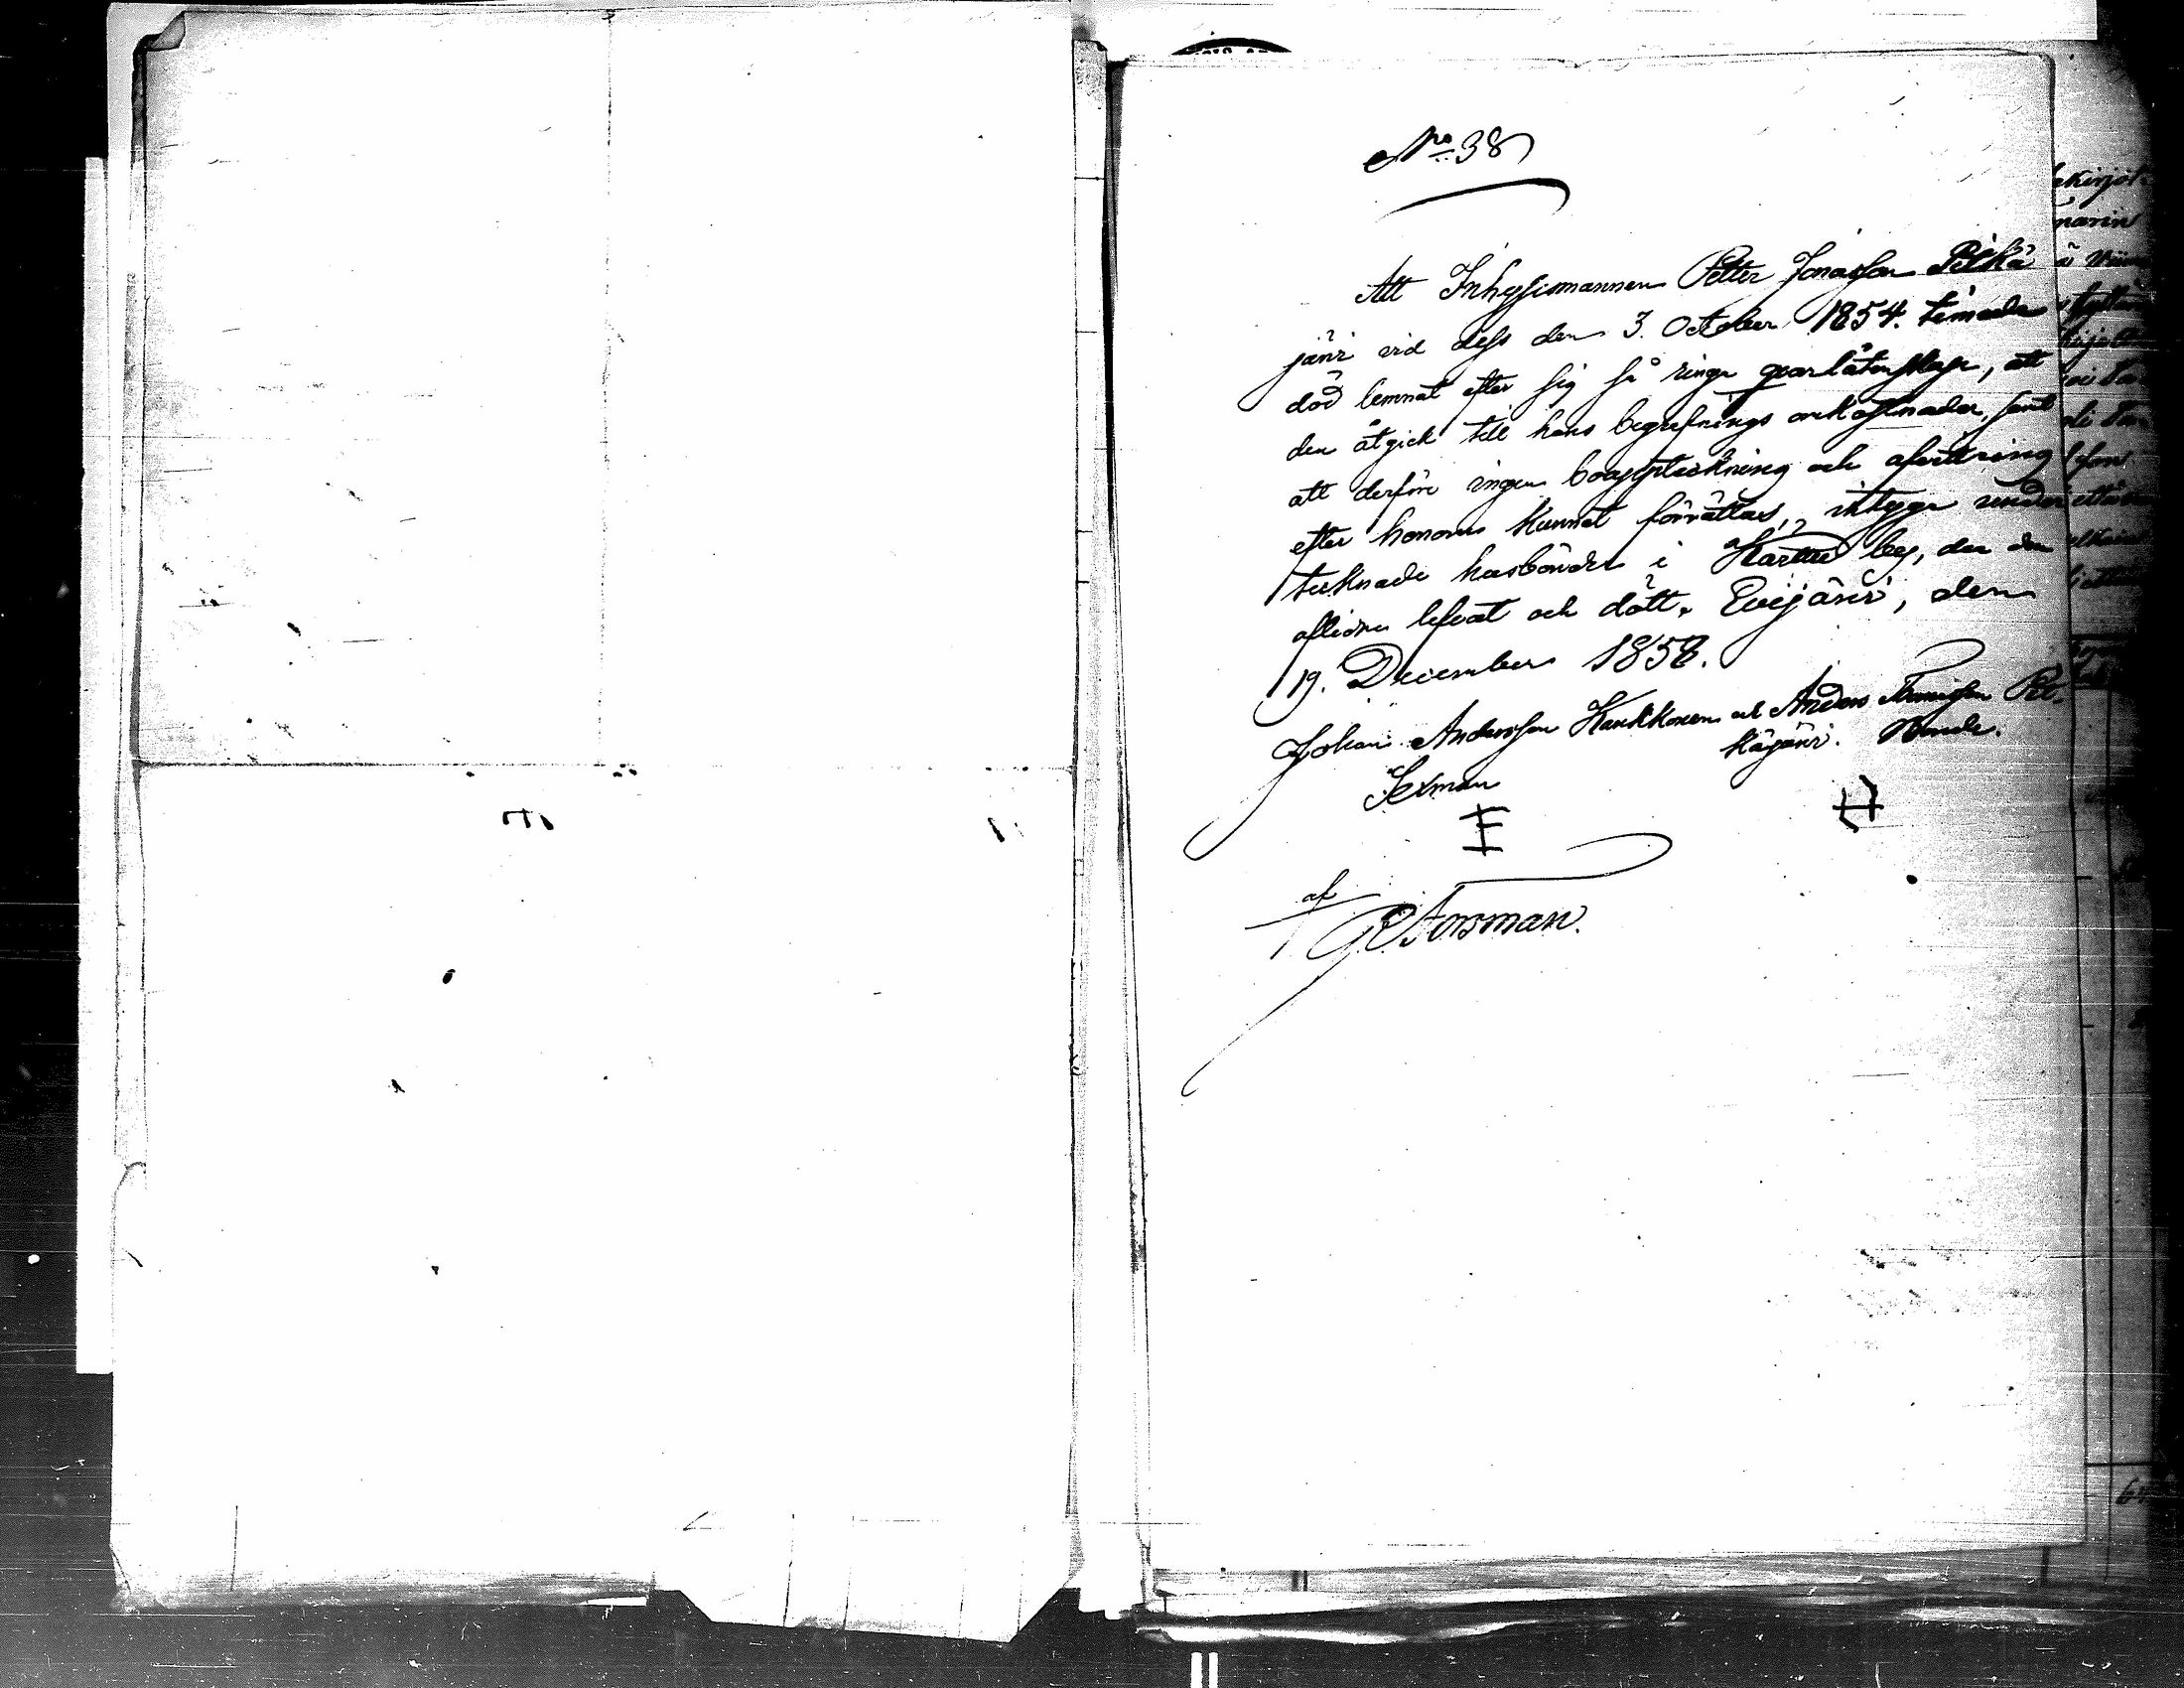 No 38
Att Inhysesmannen Petter Jonasson Pitkä
järvi vid dess den 3. October 1854. timade
död lemnat efter sig så ringa qvarlåtenskap, att
den åtgick till hans begrafnings omkostnader, samt
att derföre ingen bouppteckning och afvittring
efter honom kunnat förrättas, intyga under
tecknade husbönder i by, der den
aflidne lefvat och dött. Evijärvi, den
19. December 1858.
Johan Andersson Kaukkonen och Anders Pit-
käjärvi. Bonde.
Sexman
af